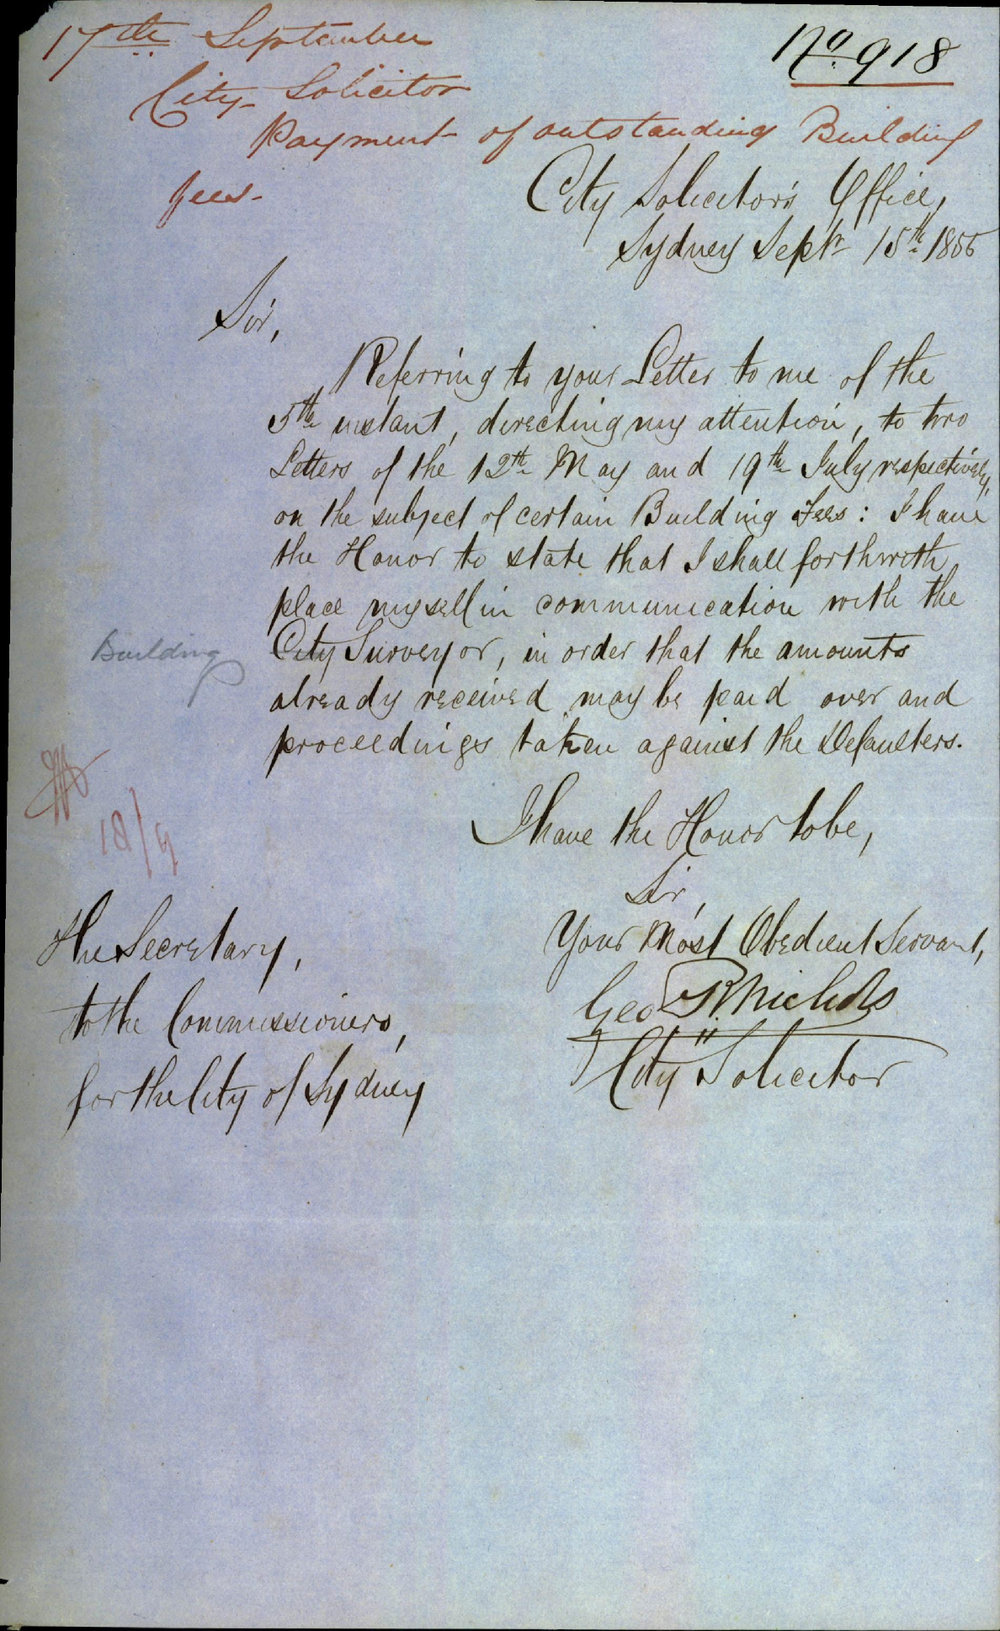 17th September
No. 918
City Solicitor
Payment of outstanding Building
fees-
City Solicitor's Office,
Sydney Septr 15th 1855
Sir,
Referring to your Letter to me of the
5th instant, directing my attention, to two
Letters of the 12th May and 19th July respectively,
on the subject of certain Building Fees: I have
the Honor to state that I shall forthwith
place myself in communication with the
Building
City Surveyor, in order that the amounts
already received may be paid over and
proceedings taken against the Defaulters.
18/9
I have the Honor to be,
Sir,
Your Most Obedient Servant,
Geo R. Nichols
City Solicitor
The Secretary,
to the Commissioners,
for the City of Sydney